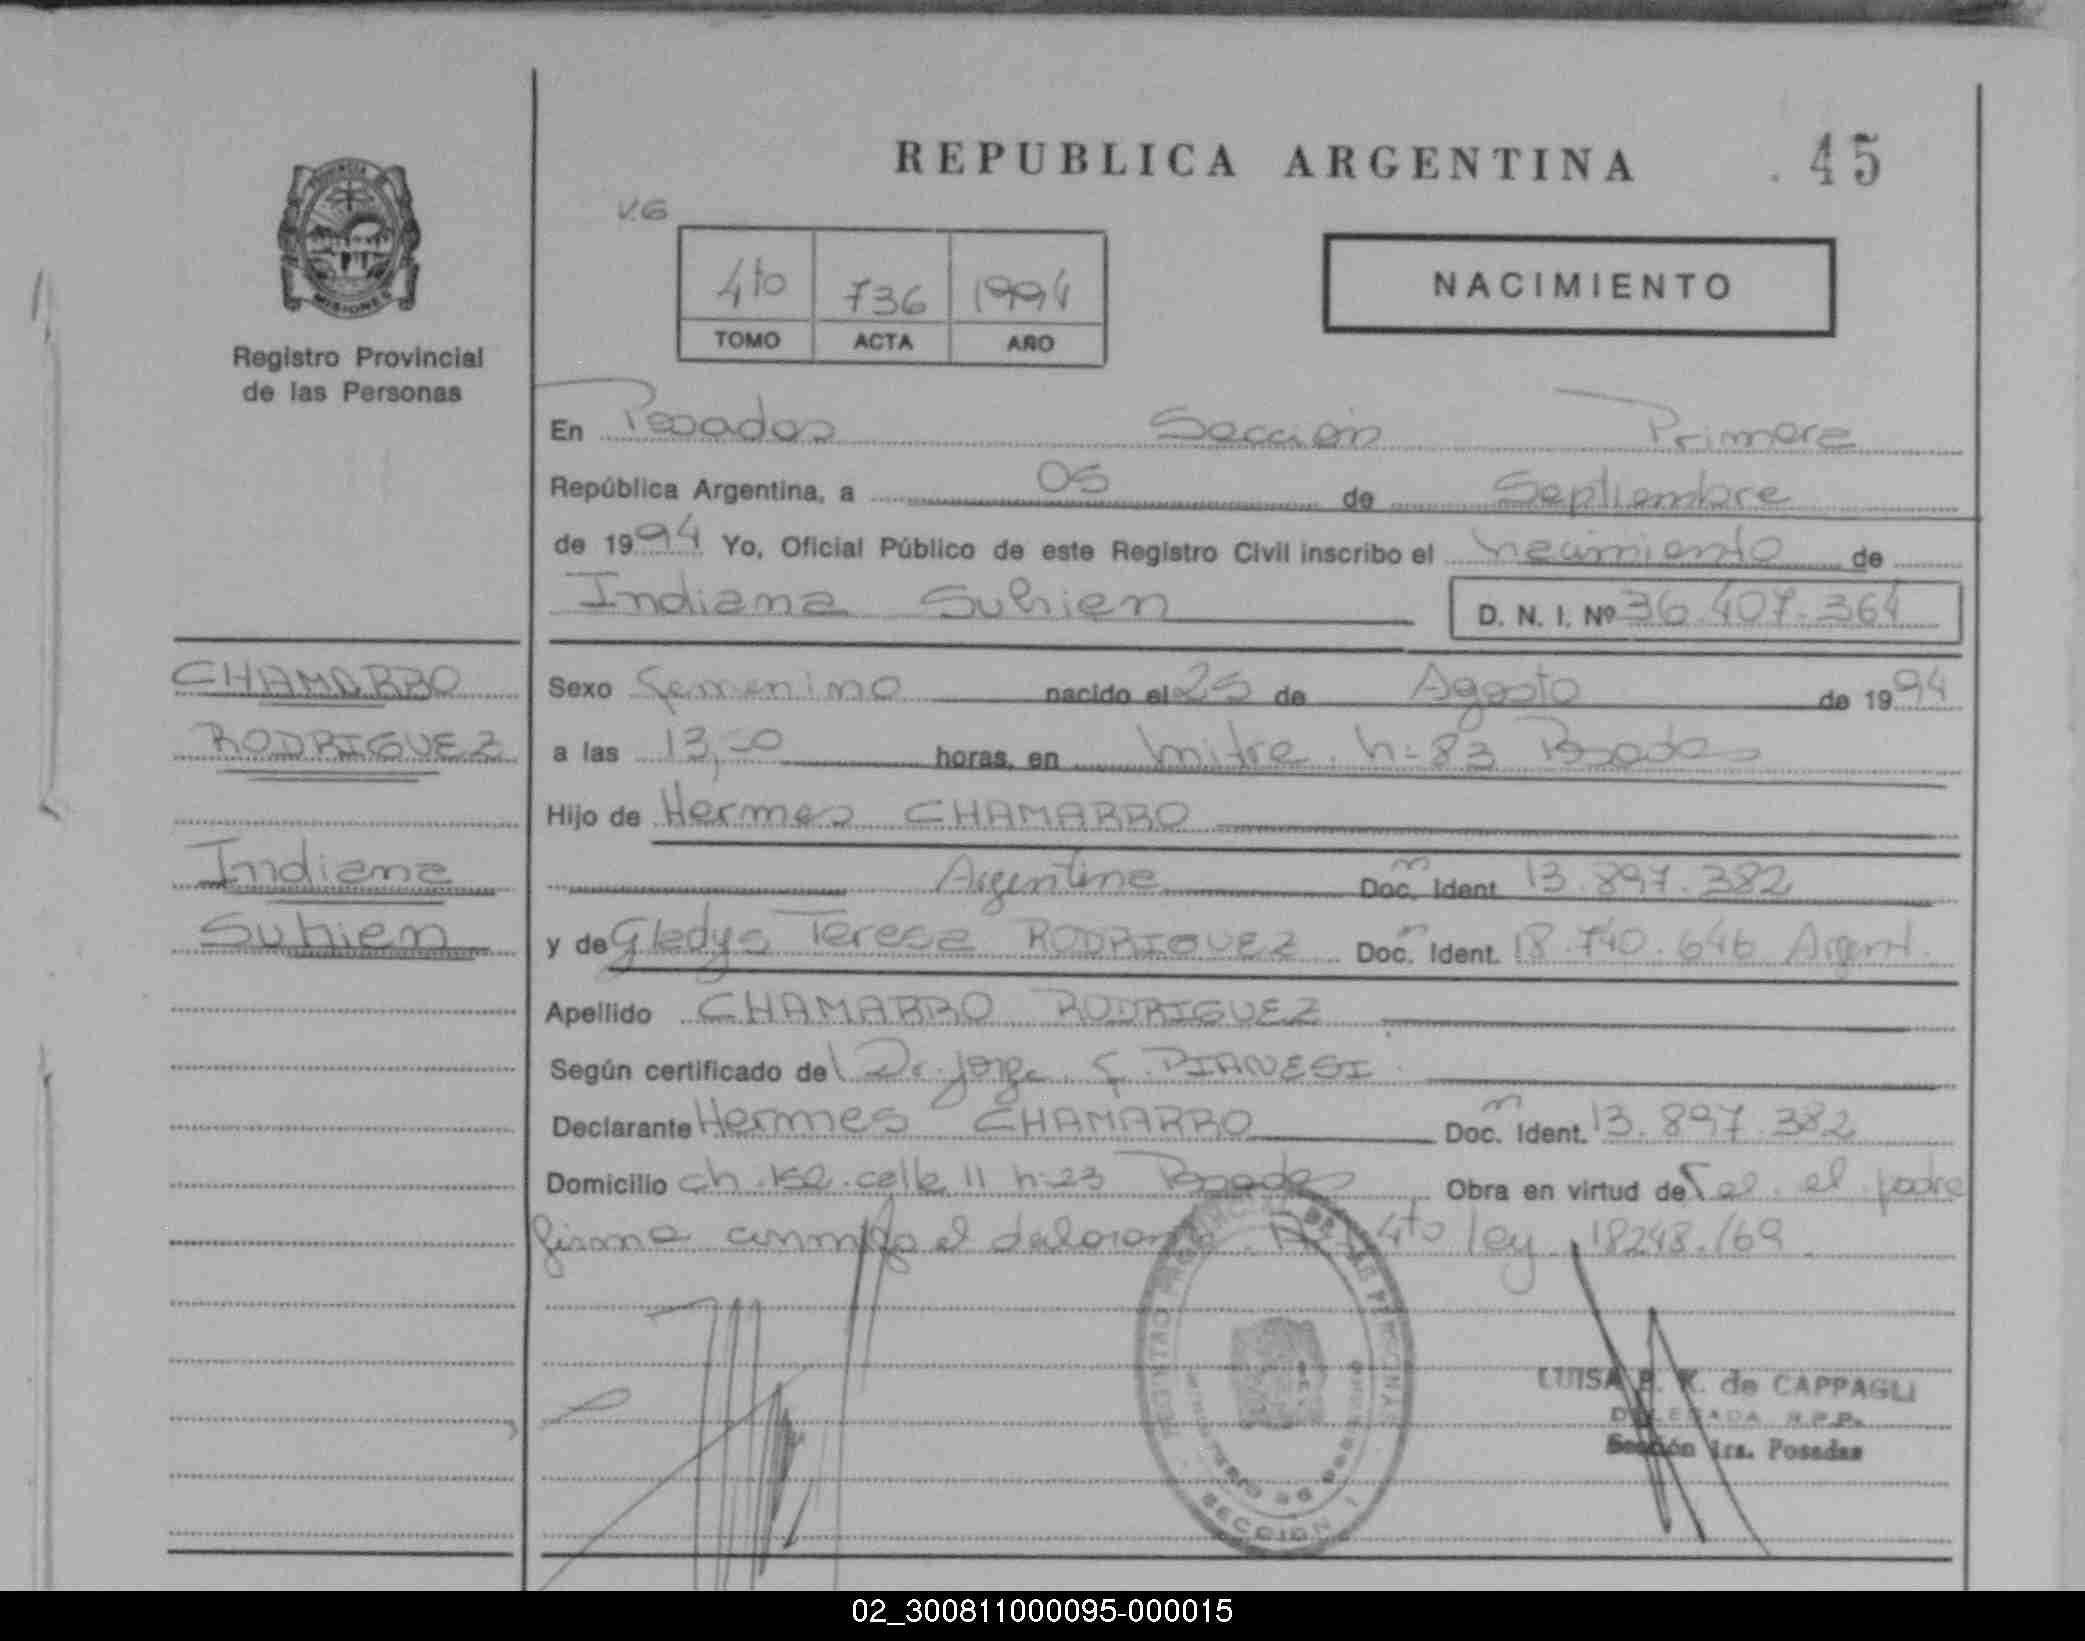 REPUBLICA ARGENTINA
. 45
V.G
4to 736 1994
TOMO ACTA AÑO
NACIMIENTO
PROVINCIA DE
MISIONES
Registro Provincial
de las Personas
En Posadas Sección Primera
República Argentina, a 05 de Septiembre
de 1994 Yo, Oficial Público de este Registro Civil inscribo el nacimiento de
Indiana Suhien D. N. I. Nº 36.407.364
CHAMARRO
RODRIGUEZ
Indiana
Suhien
Sexo femenino nacido el 25 de Agosto de 1994
a las 13,50 horas, en Mitre. h-83 Posadas
Hijo de Hermes CHAMARRO
Argentina Doc. Ident. 13.897.382
y de Gladys Teresa RODRIGUEZ Doc. Ident. 18.740.646 Argent.
Apellido CHAMARRO RODRIGUEZ
Según certificado de Dr. Jorge F. PIANESI
Declarante Hermes CHAMARRO Doc. Ident. 13.897.382
Domicilio ch. 152. calle 11 h-23 Posadas Obra en virtud de el padre
firma conmigo el declarante. 4to ley 18248/69
REGISTRO PROVINCIAL DE LAS PERSONAS
MINISTERIO DE GOBIERNO
SECCION 1
LUISA B. K. de CAPPAGLI
DELEGADA R.P.P.
Sección 1ra. Posadas
02_300811000095-000015